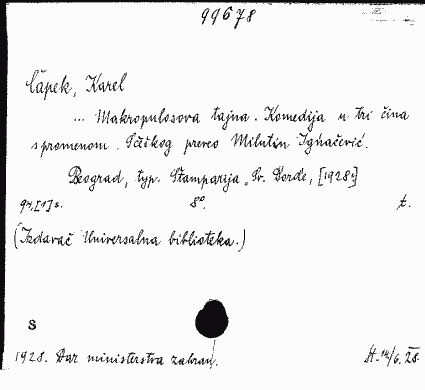 99678
Čapek, Karel
... Makropulosova tajna. Komedija u tri čina
s promenom. S češkog preveo Milutin Ignačević.
Beograd, typ. Štamparija „Sv. Đorđe, [1928?]
94,[1] s. 8°. t.
(Izdavač Universalna biblioteka.)
S
1928. Dar ministerstva zahran.
St. 14/6. 28.